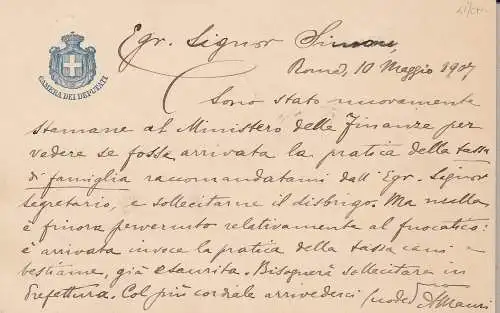 Egr. Signor Simoni,
CAMERA DEI DEPUTATI
Roma, 10 Maggio 1907
Sono stato nuovamente
stamane al Ministero delle Finanze per
vedere se fosse arrivata la pratica della tassa
di famiglia raccomandatami dall' Egr. Signor
Segretario, e sollecitarne il disbrigo. Ma nulla
è finora pervenuto relativamente al fuocatico:
è arrivata invece la pratica della tassa cani e
bestiame, già esaurita. Bisognerà sollecitare in
Prefettura. Col più cordiale arrivederci